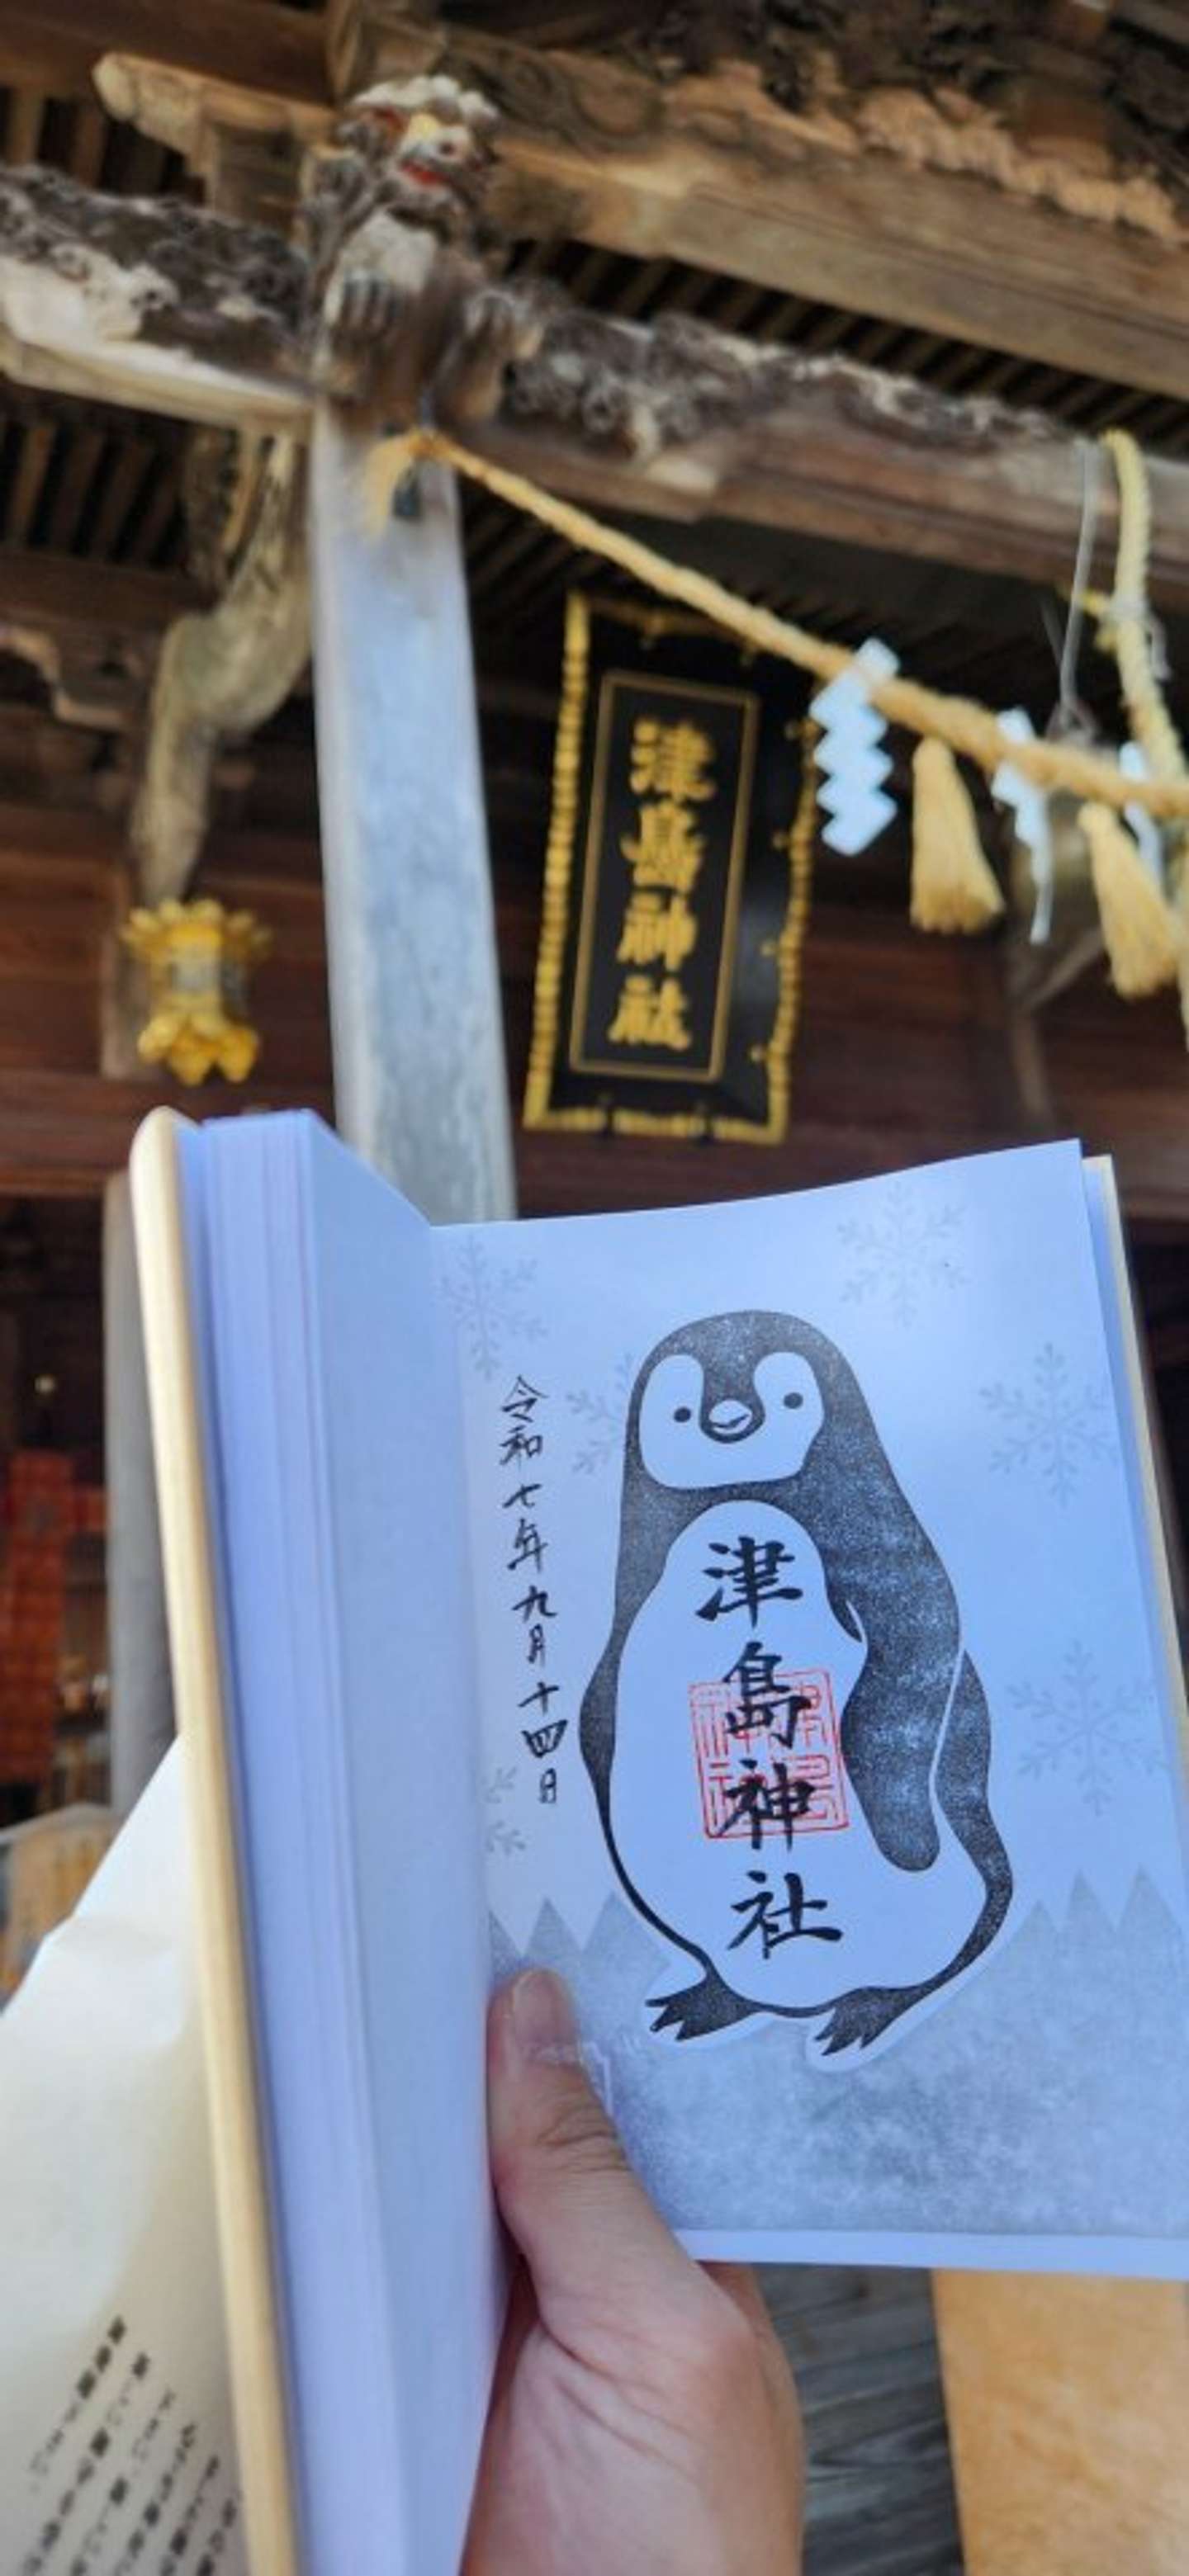 津島神社
津島神社
令和七年九月十四日